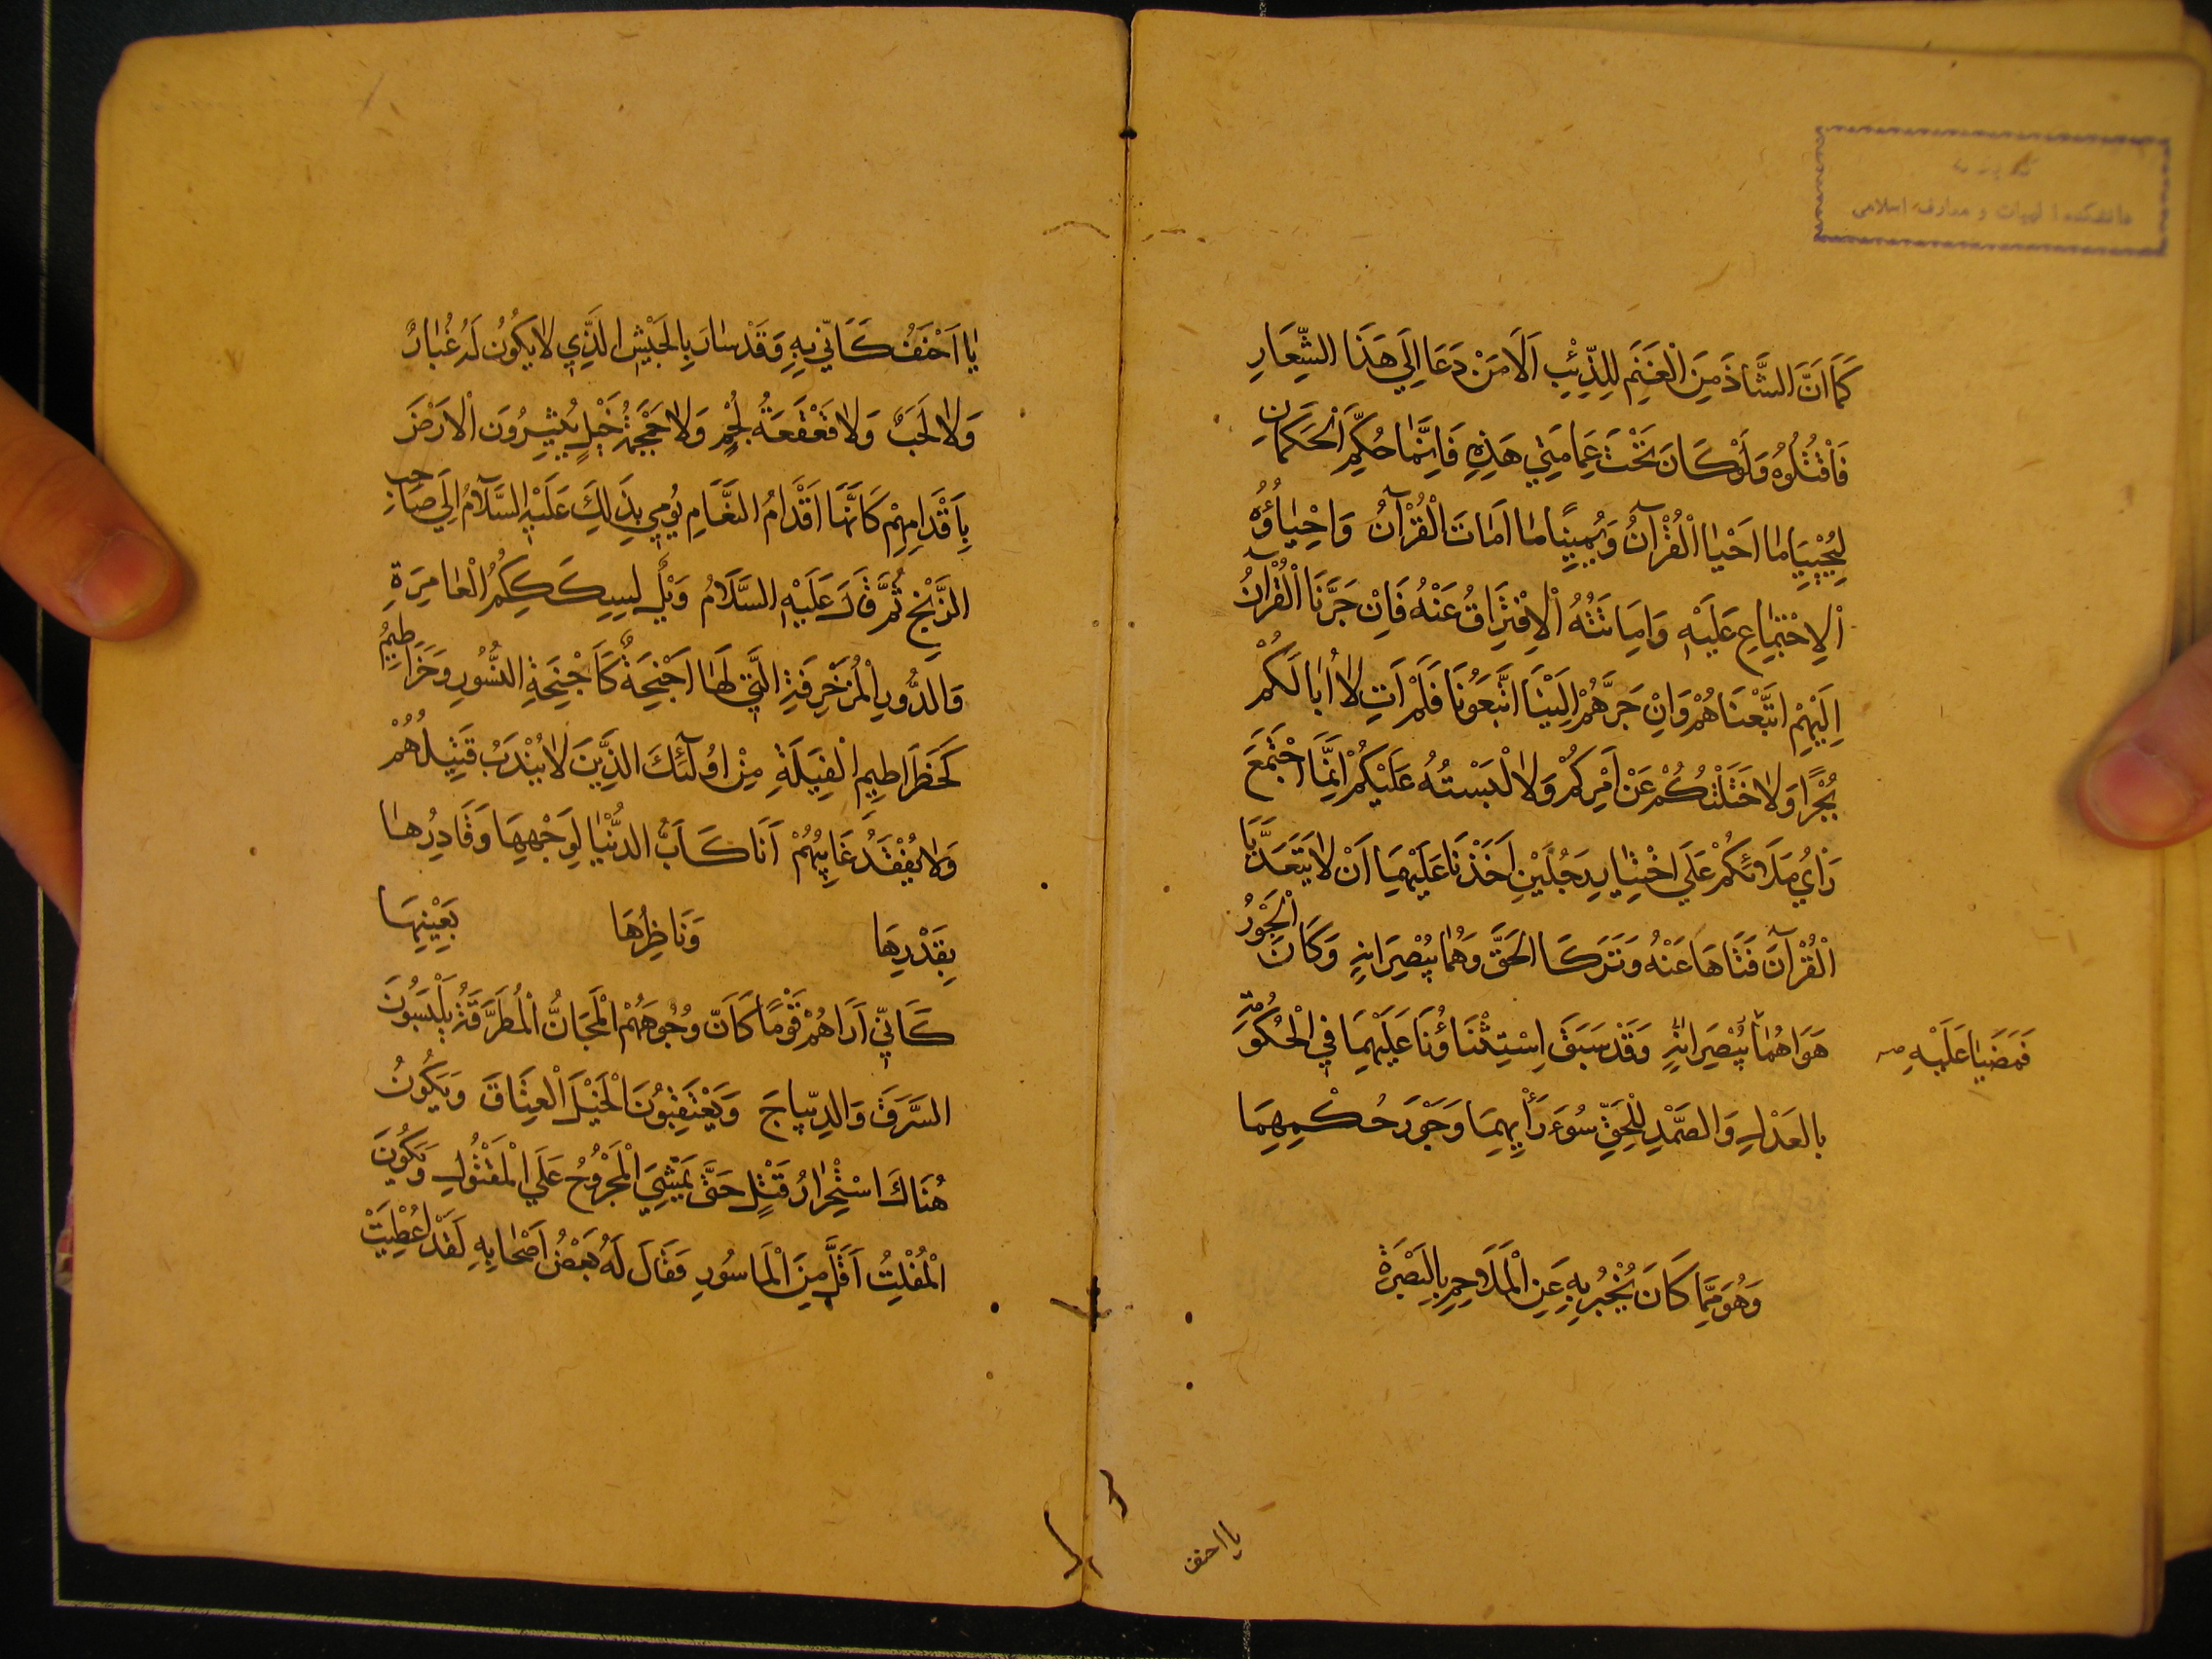 دانشكده الهيات و معارف اسلامى
كَمَا اَنَّ الشَّاذَّ مِنَ الْغَنَمِ لِلذِّئْبِ اَلَا مَنْ دَعَا اِلَي هَذَا الشِّعَارِ
فَاقْتُلُوهُ وَلَوْ كَانَ تَحْتَ عِمَامَتِي هَذِهِ فَاِنَّمَا حُكِّمَ الْحَكَمَانِ
لِيُحْيِيَا مَا اَحْيَا الْقُرْآنُ وَيُمِيتَا مَا اَمَاتَ الْقُرْآنُ وَاِحْيَاؤُهُ
اَلِاجْتِمَاعِ عَلَيْهِ وَاِمَاتَتُهُ الْاِفْتِرَاقُ عَنْهُ فَاِنْ جَرَّنَا الْقُرْآنُ
اِلَيْهِمْ اتَّبَعْنَاهُمْ وَاِنْ جَرَّهُمْ اِلَيْنَا اتَّبَعُونَا فَلَمْ آتِ لَا اَبَا لَكُمْ
بُجْرًا وَلَا خَتَلْتُكُمْ عَنْ اَمْرِكُمْ وَلَا لَبَسْتُهُ عَلَيْكُمْ اِنَّمَا اجْتَمَعَ
رَاْيُ مَلَائِكُمْ عَلَي اخْتِيَارِ رَجُلَيْنِ اَخَذْنَا عَلَيْهِمَا اَنْ لَا يَتَعَدَّيَا
الْقُرْآنَ فَتَاهَا عَنْهُ وَتَرَكَا الْحَقَّ وَهُمَا يُبْصِرَانِهِ وَكَانَ الْجَوْرُ
هَوَاهُمَا يُبْصِرَانِهِ وَقَدْ سَبَقَ اِسْتِثْنَاؤُنَا عَلَيْهِمَا فِي الْحُكُومَةِ
فَمَضَيَا عَلَيْهِ صه
بِالْعَدْلِ وَالصَّمْدِ لِلْحَقِّ سُوءَ رَاْيِهِمَا وَجَوْرَ حُكْمِهِمَا
وَهُوَ مِمَّا كَانَ يُخْبِرُ بِهِ عَنِ الْمَلَاحِمِ بِالْبَصْرَةِ
يا احنف
يَا اَحْنَفُ كَاَنِّي بِهِ وَقَدْ سَارَ بِالْجَيْشِ الَّذِي لَا يَكُونُ لَهُ غُبَارٌ
وَلَا لَجَبٌ وَلَا قَعْقَعَةُ لُجُمٍ وَلَا حَمْحَمَةُ خَيْلٍ يُثِيرُونَ الْاَرْضَ
بِاَقْدَامِهِمْ كَاَنَّهَا اَقْدَامُ النَّعَامِ يُومِي بِذَلِكَ عَلَيْهِ السَّلَامُ اِلَي صَاحِبِ
الزَّنْجِ ثُمَّ قَالَ عَلَيْهِ السَّلَامُ وَيْلٌ لِسِكَكِكُمُ الْعَامِرَةِ
وَالدُّورِ الْمُزَخْرَفَةِ الَّتِي لَهَا اَجْنِحَةٌ كَاَجْنِحَةِ النُّسُورِ وَخَرَاطِيمُ
كَخَرَاطِيمِ الْفِيَلَةِ مِنْ اُولَئِكَ الَّذِينَ لَا يُنْدَبُ قَتِيلُهُمْ
وَلَا يُفْقَدُ غَايِبُهُمْ اَنَا كَابُّ الدُّنْيَا لِوَجْهِهَا وَقَادِرُهَا
بِقَدْرِهَا وَنَاظِرُهَا بِعَيْنِهَا
كَاَنِّي اَرَاهُمْ قَوْمًا كَاَنَّ وُجُوهَهُمُ الْمَجَانُّ الْمُطَرَّقَةُ يَلْبَسُونَ
السَّرَقَ وَالدِّيبَاجَ وَيَعْتَقِبُونَ الْخَيْلَ الْعِتَاقَ وَيَكُونُ
هُنَاكَ اسْتِحْرَارُ قَتْلٍ حَتَّي يَمْشِيَ الْمَجْرُوحُ عَلَي الْمَقْتُولِ وَيَكُونَ
الْمُفْلِتُ اَقَلَّ مِنَ الْمَاسُورِ فَقَالَ لَهُ بَعْضُ اَصْحَابِهِ لَقَدْ اُعْطِيتَ